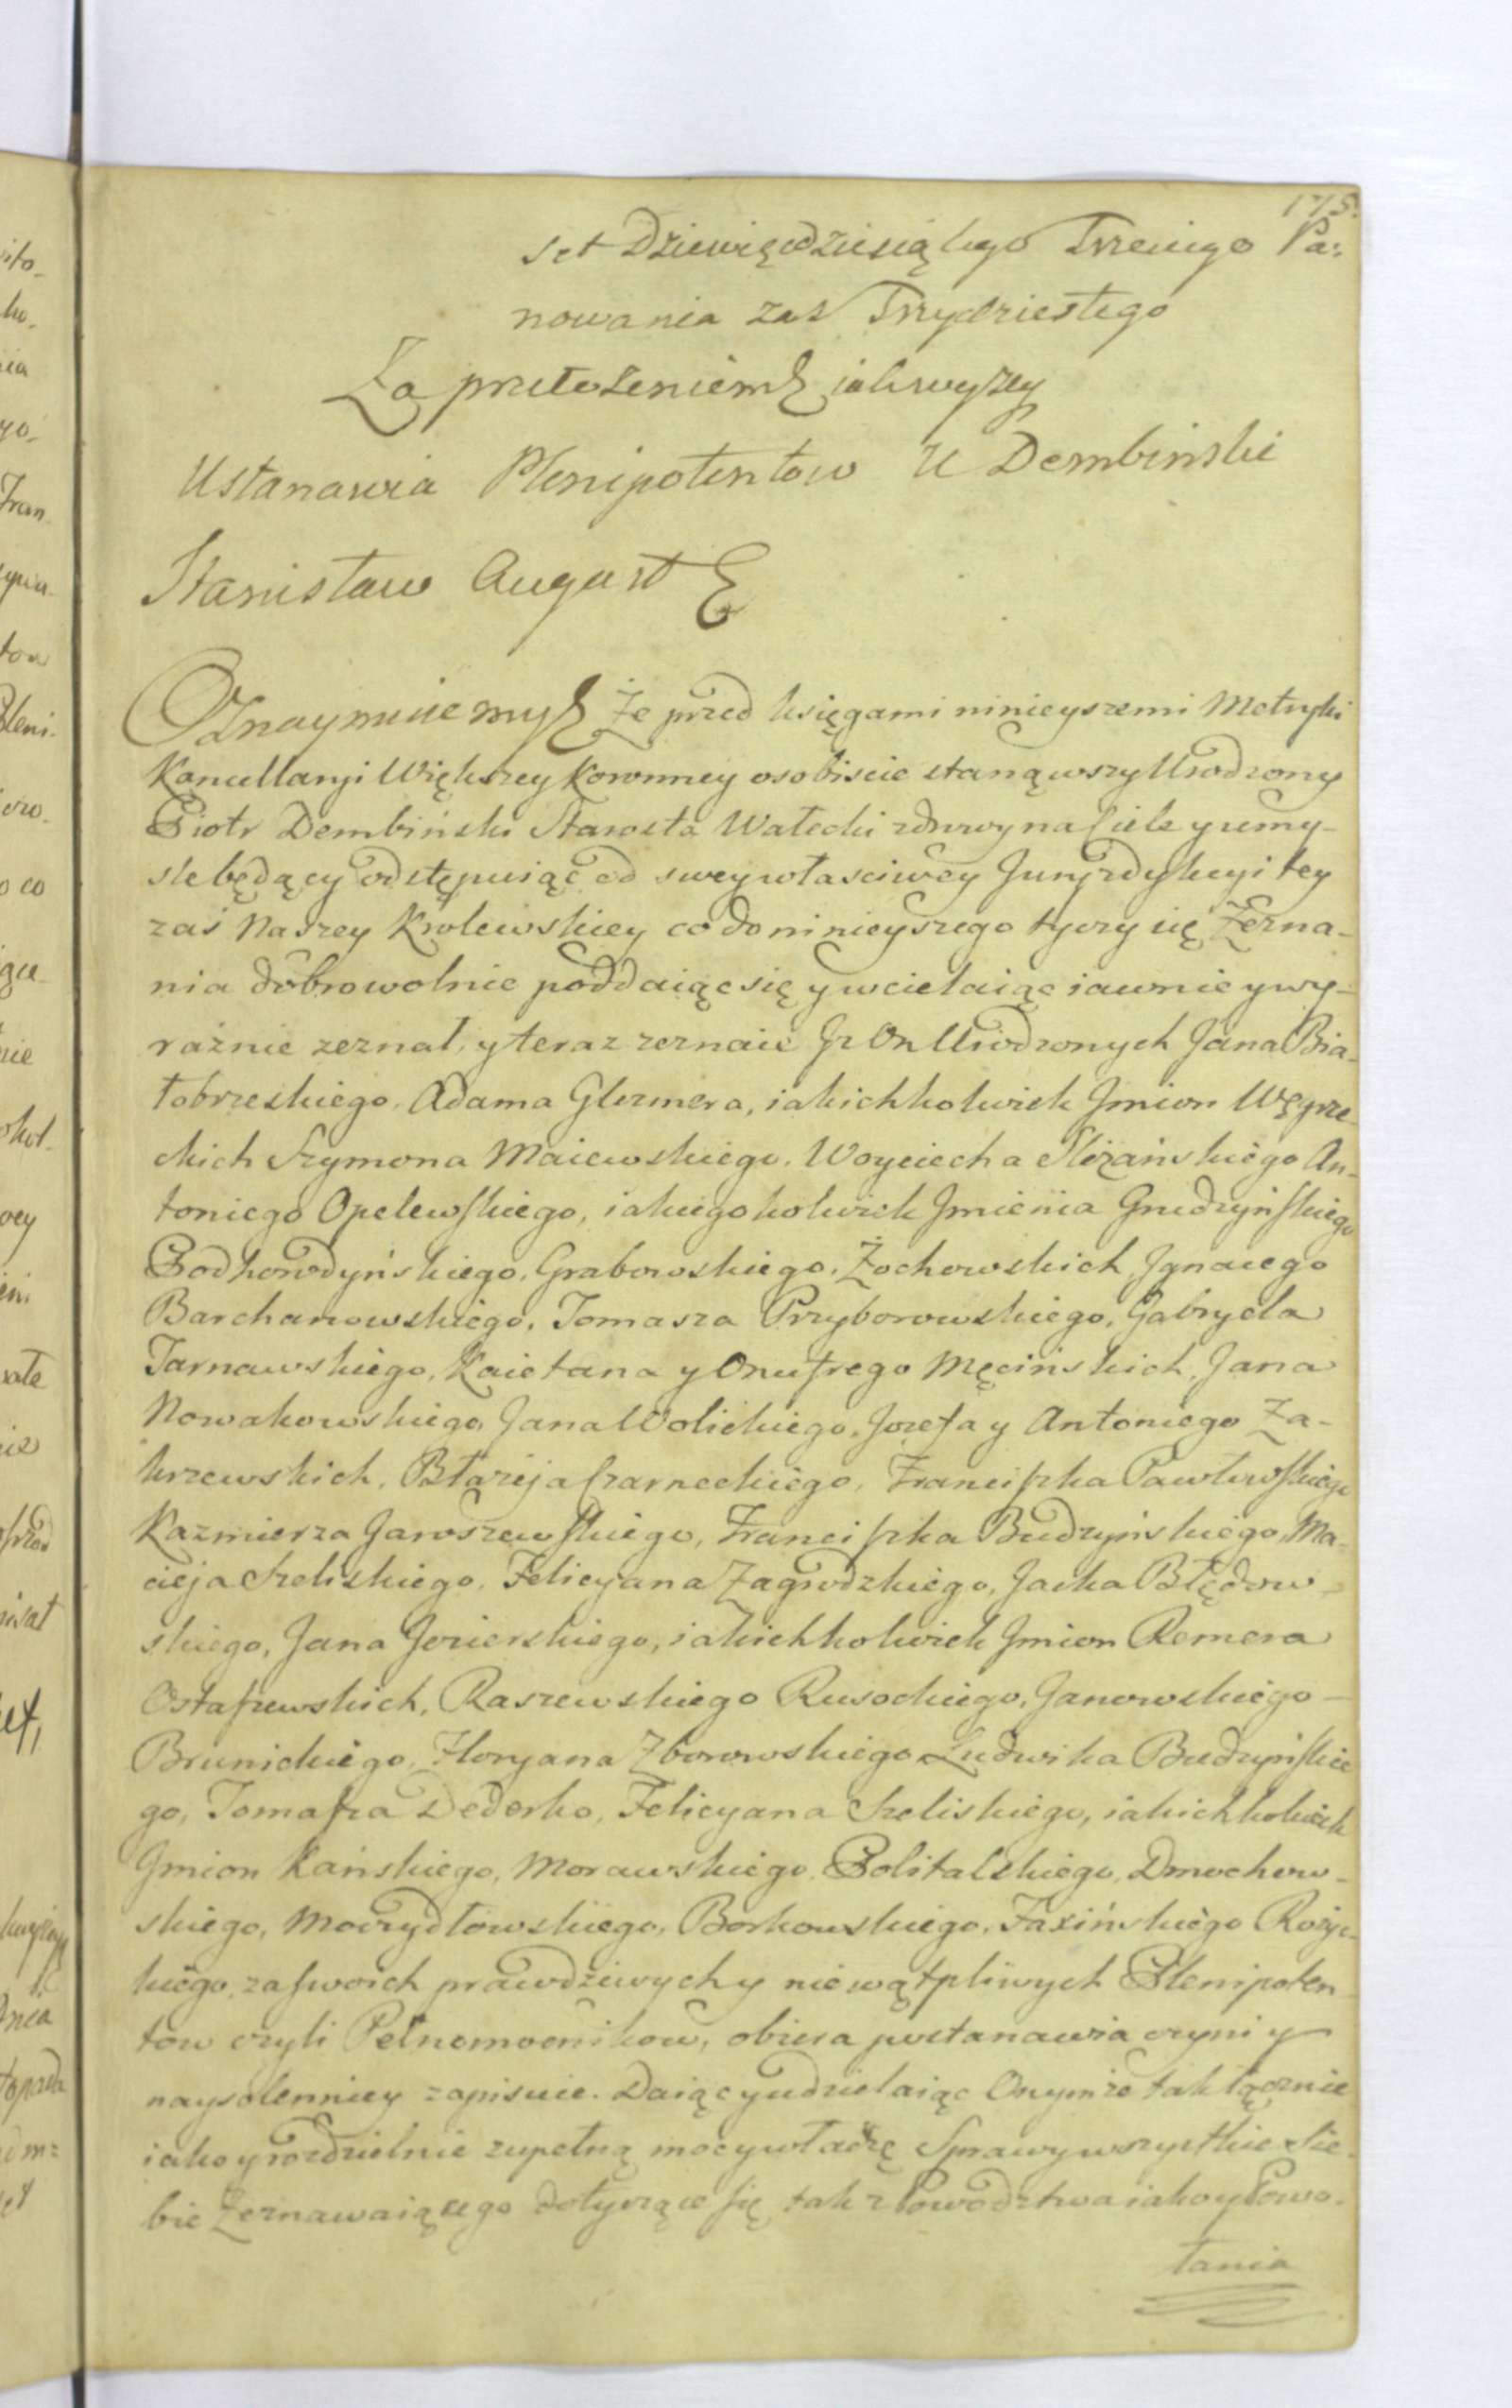 175.
set Dziewięćdziesiątego Trzeciego Pa:
nowania zaś Trzydziestego
Za przełożeniem jak wyżey
Ustanawia Plenipotentow U Dembinski
Stanisław August &
Oznaymuiemy & Że przed księgami ninieyszemi Metryki
Kancellaryi Większey Koronney osobiscie stanąwszy Urodzony
Piotr Dembiński Starosta Wałecki zdrowy na Ciele y umy-
sle będący odstępuiąc od swey własciwey Juryzdykcyi tey
zaś Naszey Krolewskiey co do ninieyszego tyczy się Zezna-
nia dobrowolnie poddaiąc się y wcielaiąc iawnie y wy-
raźnie zeznał, y teraz zeznaie Jż On Urodzonych Jana Bia-
łobrzeskiego, Adama Glezmera, iakichkolwiek Jmion Węgrze-
ckich Szymona Maiewskiego, Woyciecha Slizańskiego An-
toniego Opelewskiego, iakiegokolwiek Jmienia Grudzyńskiego
Podhorodyńskiego, Grabowskiego, Żochowskich, Jgnacego
Barchanowskiego, Tomasza Przyborowskiego, Gabryela
Tarnawskiego, Kaietana y Onufrego Męcińskich, Jana
Nowakowskiego, Jana Wolickiego, Jozefa y Antoniego Za-
krzewskich, Błażeja Czarneckiego, Franciszka Pawłowskiego
Kazmierza Jaroszewskiego, Franciszka Budzyńskiego, Ma-
cieja Szeliskiego, Felicyana Zagrodzkiego, Jacka Błędow-
skiego, Jana Jezierskiego, iakichkolwiek Jmion Remera
Ostaszewskich, Raszewskiego Rusockiego, Janowskiego -
Brunickiego, Floryana Zborowskiego Ludwika Budzyńskie
go, Tomasza Dederko, Felicyana Szeliskiego, iakichkolwiek
Jmion Kańskiego, Morawskiego, Politalskiego, Dmochow-
skiego, Moczydłowskiego, Borkowskiego, Jaxińskiego Rożyc-
kiego, za swoich prawdziwych y niewątpliwych Plenipoten
tow czyli Pełnomocnikow, obiera postanawia czyni y
naysolenniey zapisuie. Daiąc y udzielaiąc Onymże tak łącznie
iako y rozdzielnie zupełną moc y władzę Sprawy wszystkie Sie-
bie Zeznawaiącego dotyczące się, tak z Powodztwa iako y Powo-
łania